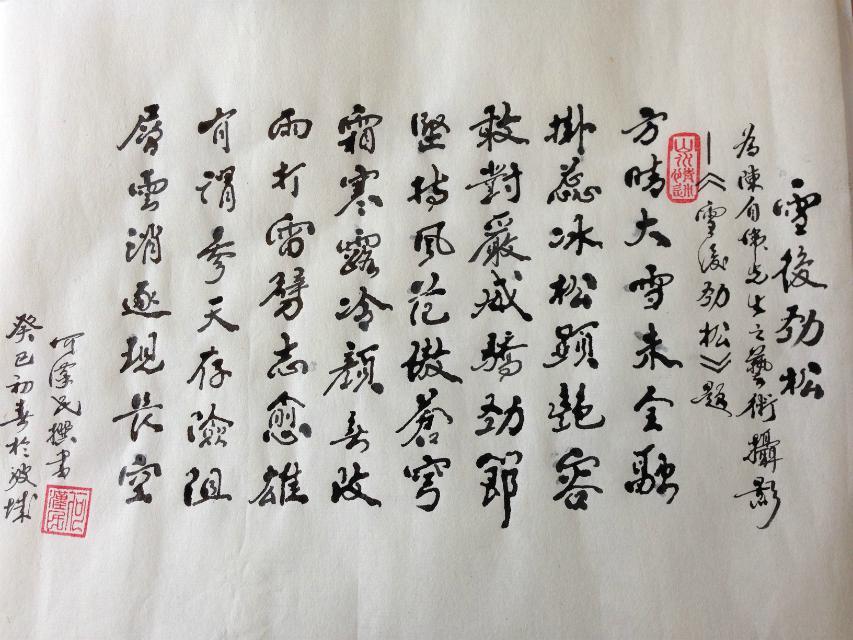 雪後劲松
為陳自偉先生之藝術攝影
—《雪後劲松》題
方晴大雪未全融
掛蕊冰松顕艶容
敢對嚴威驕劲節
堅持風范傲蒼穹
霜寒露冷顏無改
雨打雷劈志愈雄
有謂參天存險阻
層雲消逐現長空
何漢民撰書
癸巳初春於波城
何漢民